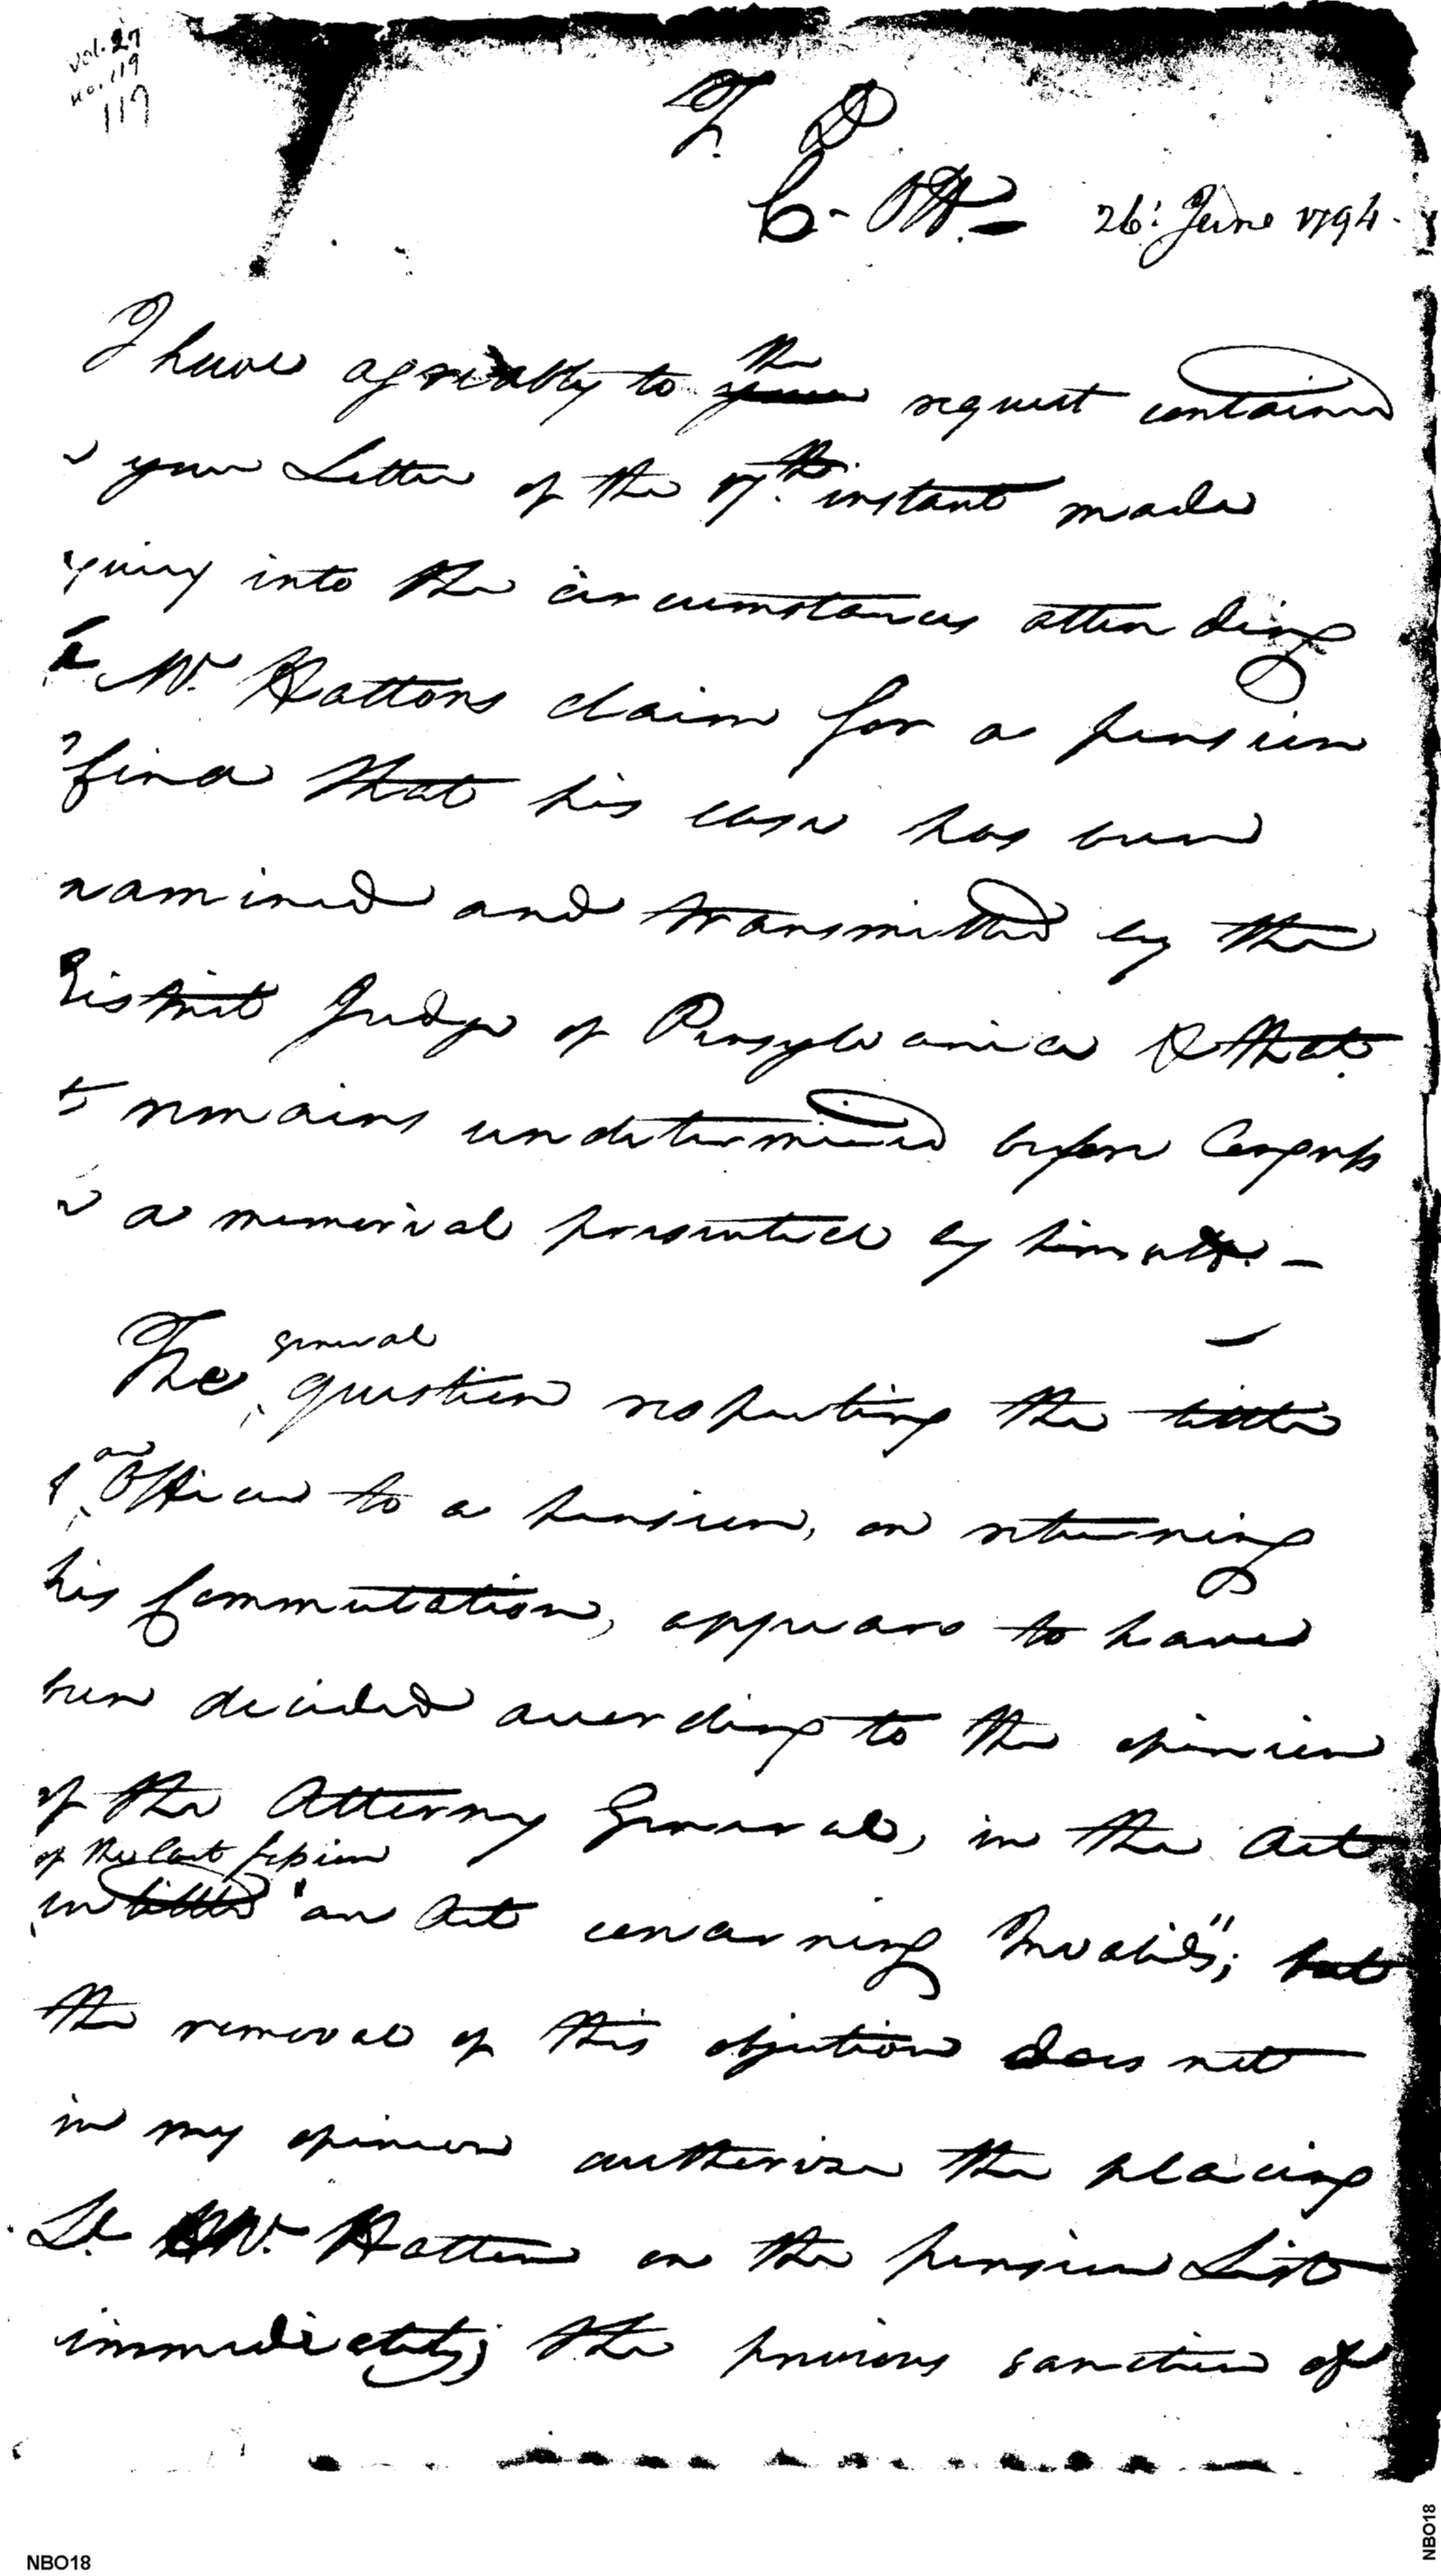 Vol. 27
No. 119
117
T. D.
C. Off. 26: June 1794.
I have agreeably to the request contained
your Letter of the 17th. instant made
quiry into the circumstances attending
W. Hattons claim for a pension
find that his case has been
xamined and transmitted by the
District Judge of Pensylvania & that
it remains undetermined before Congress
a memorial presented by himself.
The general question respecting the title
an Officer to a pension, on returning
his Commutation, appears to have
been decided according to the opinion
of the Attorney General, in the Act
of the last session
intitled "an Act concerning Invalids"; but
the removal of this objection does not
in my opinion authorise the placing
Lt. W. Hatton on the pension List
immediately; the previous sanction of
NBO18
NBO18